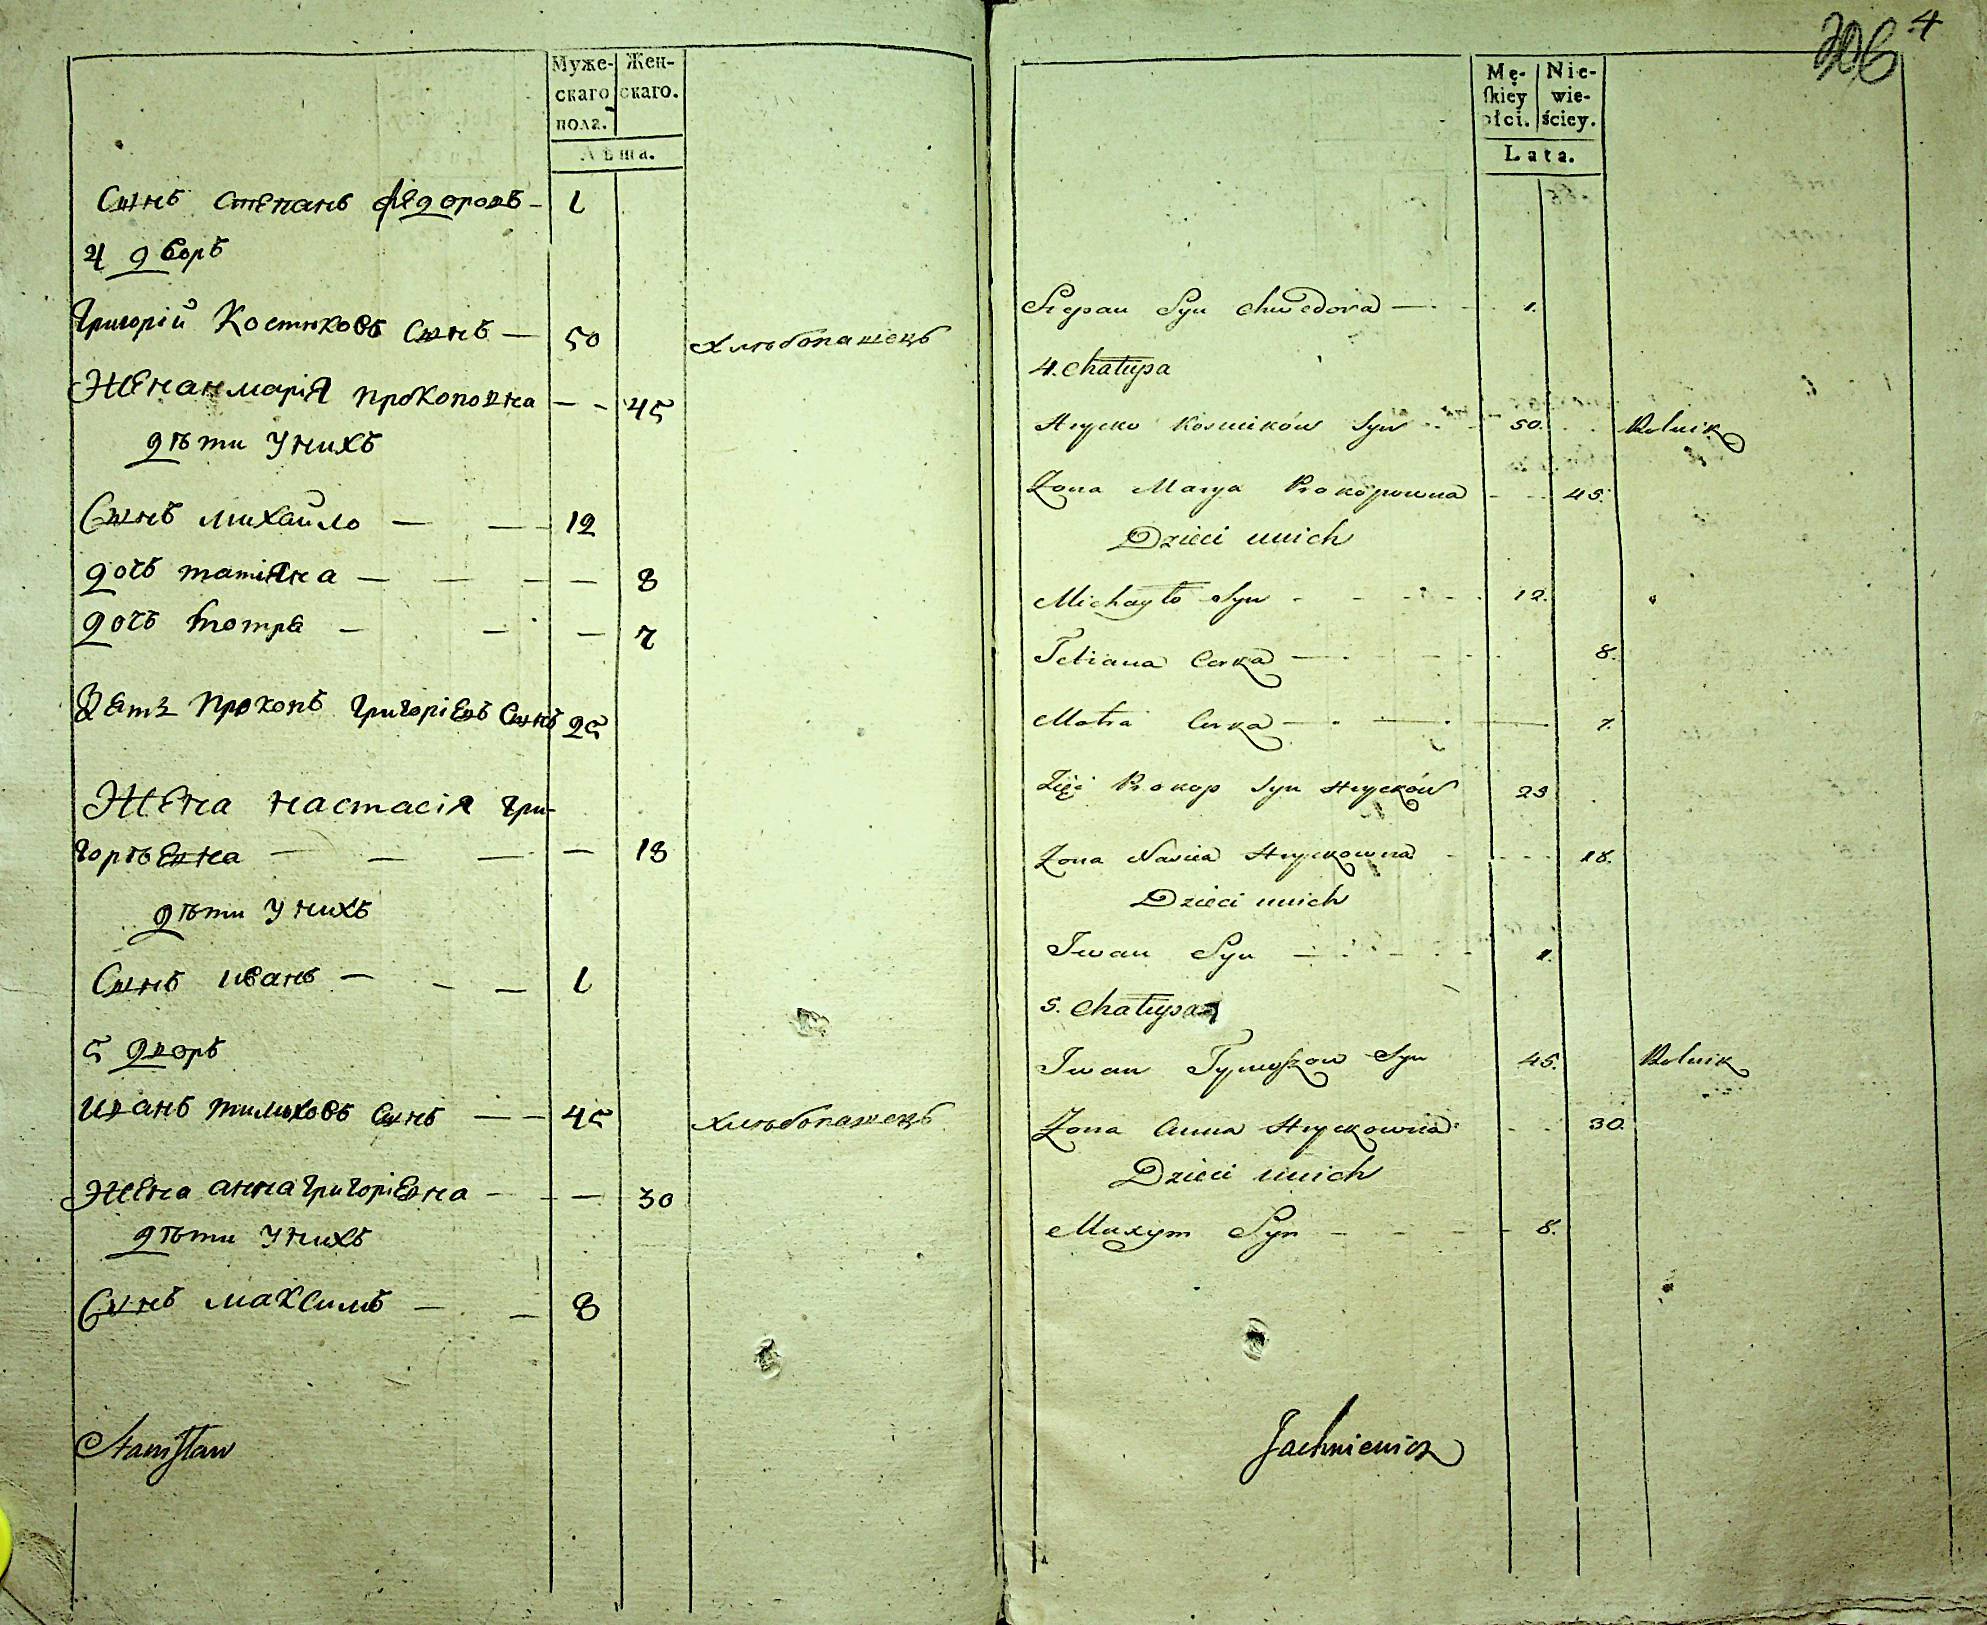 Муже-
скаго
пола.
Жен-
скаго.
Лѣта.
Сынъ Степанъ Федоровъ — 1
4 дворъ
Григорій Костюковъ Сынъ — 50 Хлѣбопашецъ
Жена Марія Прокоповна — — 45
дѣти У нихъ
Сынъ Михайло — — 12
дочь татіяна — — — — 8
дочь мотря — — — 7
Зять Прокопъ Григоріевъ Сынъ 25
Жена Настасія Гри-
горъевна — — — — 18
дѣти У нихъ
Сынъ иванъ — — — 1
5 дворъ
Иванъ тимошковъ Сынъ — — 45 Хлѣбопашецъ
Жена анна григоріевна — — — 30
дѣти У нихъ
Сынъ максимъ — — 8
Stanisław
206 4
Mę-
skiey
płci.
Nie-
wie-
ściey.
Lata.
Stepan Syn Chwedora — 1.
4. Chałupa
Hrycko Kosciuków Syn 50. Rolnik
Zona Marya Prokopowna 45.
Dzieci unich
Michayło Syn 12.
Tetiana Corka — 8.
Motra Corka — 7.
Zięć Prokop Syn Hryćków 25
Zona Nascia Hryckowna 18.
Dzieci unich
Iwan Syn — 1.
5. Chałupa
Iwan Tymoszkow Syn 45. Rolnik
Zona Anna Hryckowna 30.
Dzieci unich
Maxym Syn — 8.
Jachniewicz